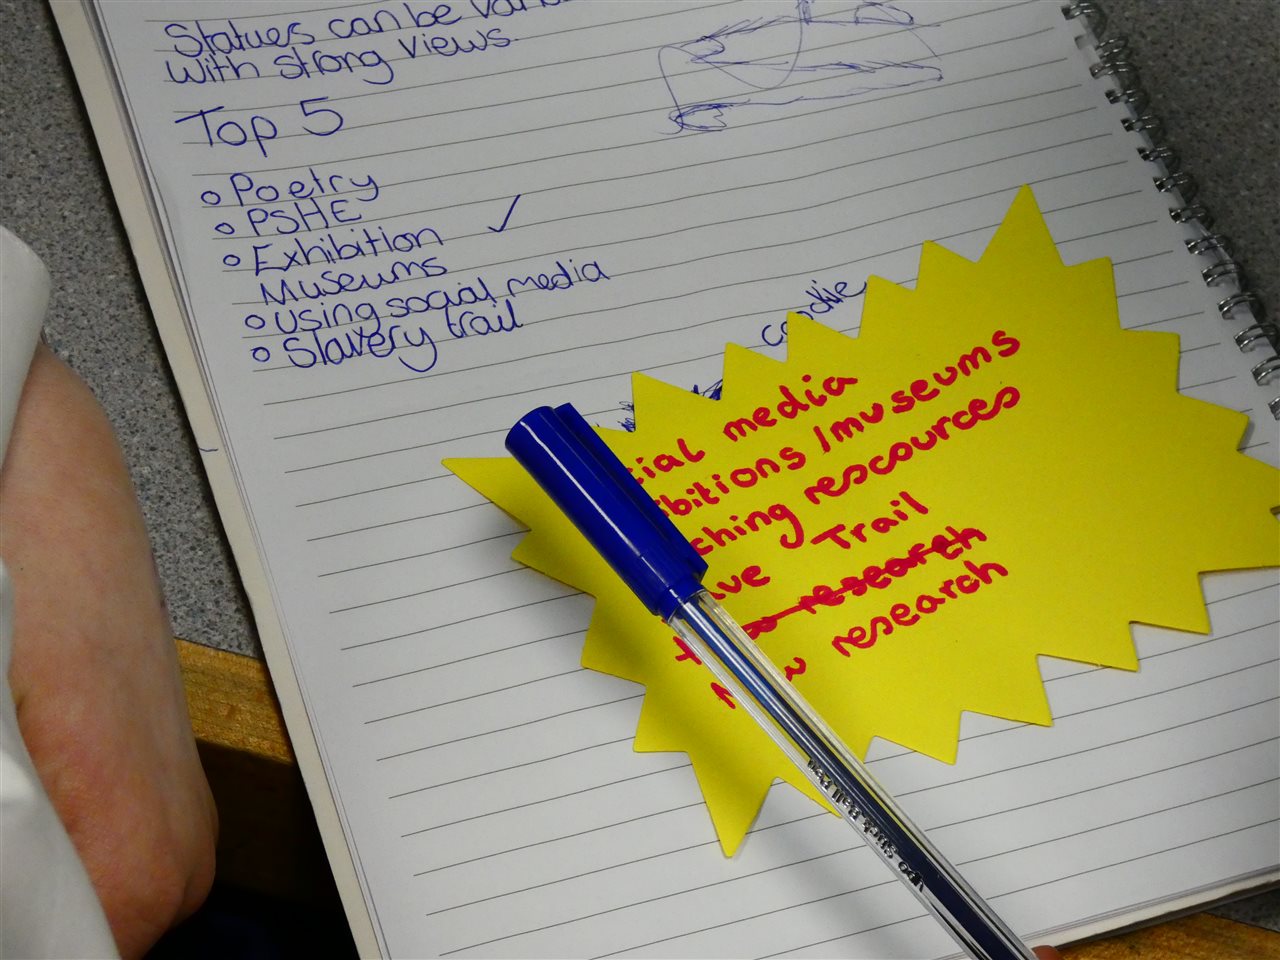 Statues can be
with strong views.
Top 5
Poetry
PSHE
Exhibition ✓
Museums
using social media
Slavery trail
cookie
cial media
bitions / museums
ching rescources
ve Trail
research
research
VPO Stick Ball Pen